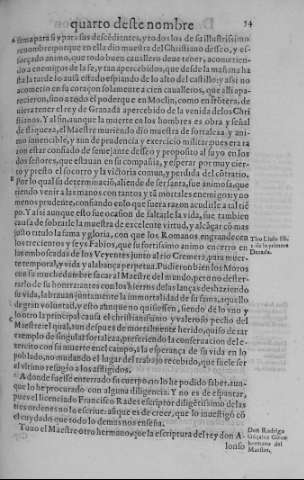 quarto deste nombre 54
sima para si y para sus descēdientes, y todos los de su illustrissimo
renombre porque en ella dio muestra del Christiano desseo, y es-
forçado animo, que todo buen cauallero deue tener, acometien-
do a enemigos de la fe, y tan apercebidos, que desde la mañana ha
sta la tarde lo auiā estado espiando de lo alto del castillo: y assi no
acometieron su coraje solamente a cien caualleros, que alli apa-
recieron, sino a todo el poder que en Moclin, como en frōtera, de
uia tener el rey de Granada apercebido de la venida delos Chri
stianos. Y al fin, aunque la muerte en los hombres es obra y señal
de flaqueza, el Maestre muriendo dio muestra de fortaleza y ani-
mo inuencible, y aun de prudencia y exercicio militar pues era ra
zon estar confiado de semejante desseo y proposito al suyo en los
dos señores, que estauan en su compañia, y esperar por muy cier-
to y presto el socorro y la victoria comun, y perdida del cōtrario.
Por lo qual su determinaciō, allende de ser santa, fue animosa, que
riendo venir a las manos con tantos y tā mortales enemigos y no
menos prudente, confiando en lo que fuera razon acudille a tal tiē
po. Y assi aunque esto fue ocasion de faltarle la vida, fue tambien
causa de sobrarle la muestra de excelente virtud, y alcāçar cō mas
justo titulo la fama y gloria, con que los Romanos engrandecen
los trecientos y seys Fabios, que su fortissimo animo encerro en
las emboscadas de los Veyentes junto al rio Cremera, para muer-
te temporal, y vida y alabança perpetua. Pudieron bien los Moros
con su muchedumbre sacar al Maestre del mundo, pero no dester-
rarlo de su honra: antes con los hierros de las lanças deshaziendo
su vida, labraron juntamente la immortalidad de su fama, aquello
de gran voluntad, y esto aunque no quisiessen, siendo de lo vno y
lo otro la principal causa el christianissimo y valeroso pecho del
Maestre: el qual, aun despues de mortalmente herido, quiso dar
exemplo de singular fortaleza, prefiriendo la conseruacion del e-
xercito con su muerte en el campo, a la esperança de su vida en lo
poblado, no mudando el lugar del trabajo recebido, que suele ser
el vltimo refugio a los affligidos.
A donde fuesse enterrado su cuerpo, no lo he podido saber, aun-
que lo he procurado con alguna diligencia. Y no es de espantar,
pues el licenciado Francisco Rades escriptor diligētissimo de las
tres ordenes no lo escriue: aūque es de creer, que lo inuestigò cō
el cuydado que todo lo demas nos enseña.
Tuuo el Maestre otro hermano, que la escriptura del rey don A-
lonso
Tito Liuio lib.
2 de la primera
Decada.
Don Rodrigo
Gonçalez Giron
hermano del
Maestre.